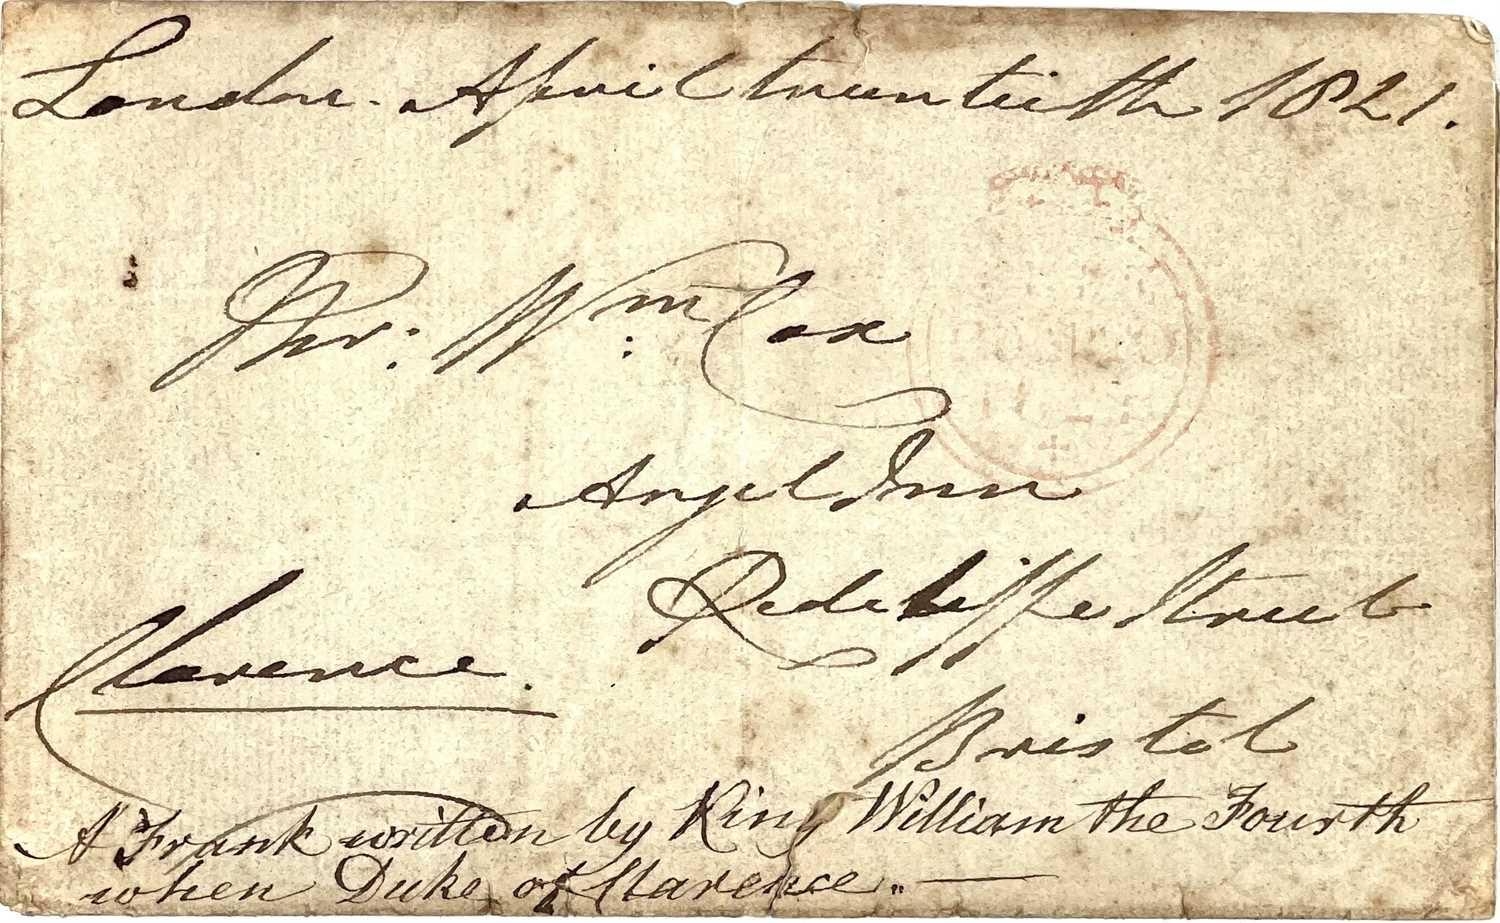 London. April twentieth 1821.
Mr: Wm: Cox
Angel Inn
Redcliffe Street
Clarence.
Bristol
A Frank written by King William the Fourth
when Duke of Clarence. —